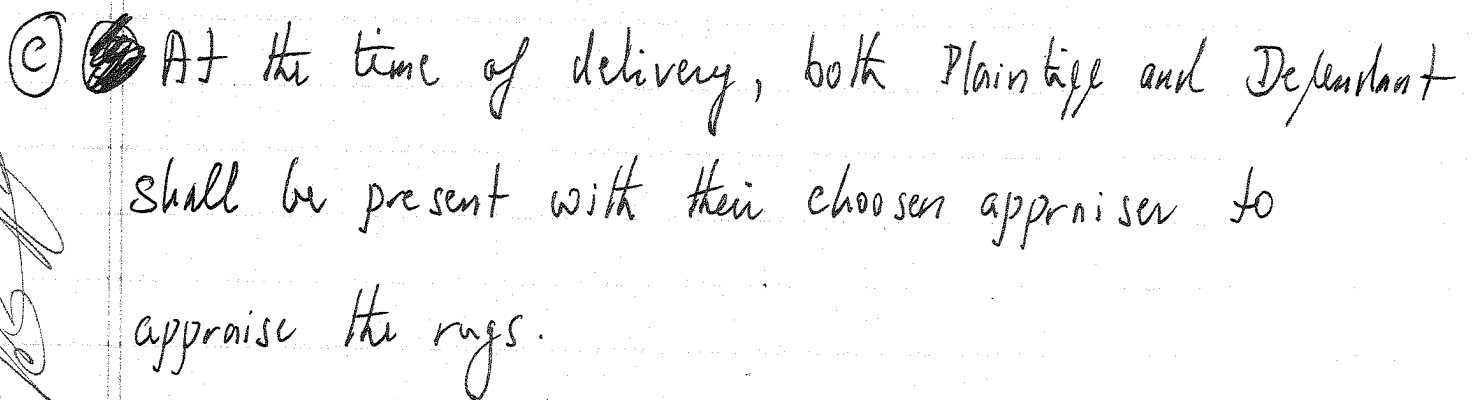 Ⓒ At the time of delivery, both Plaintiff and Defendant
shall be present with their choosen appraiser to
appraise the rugs.